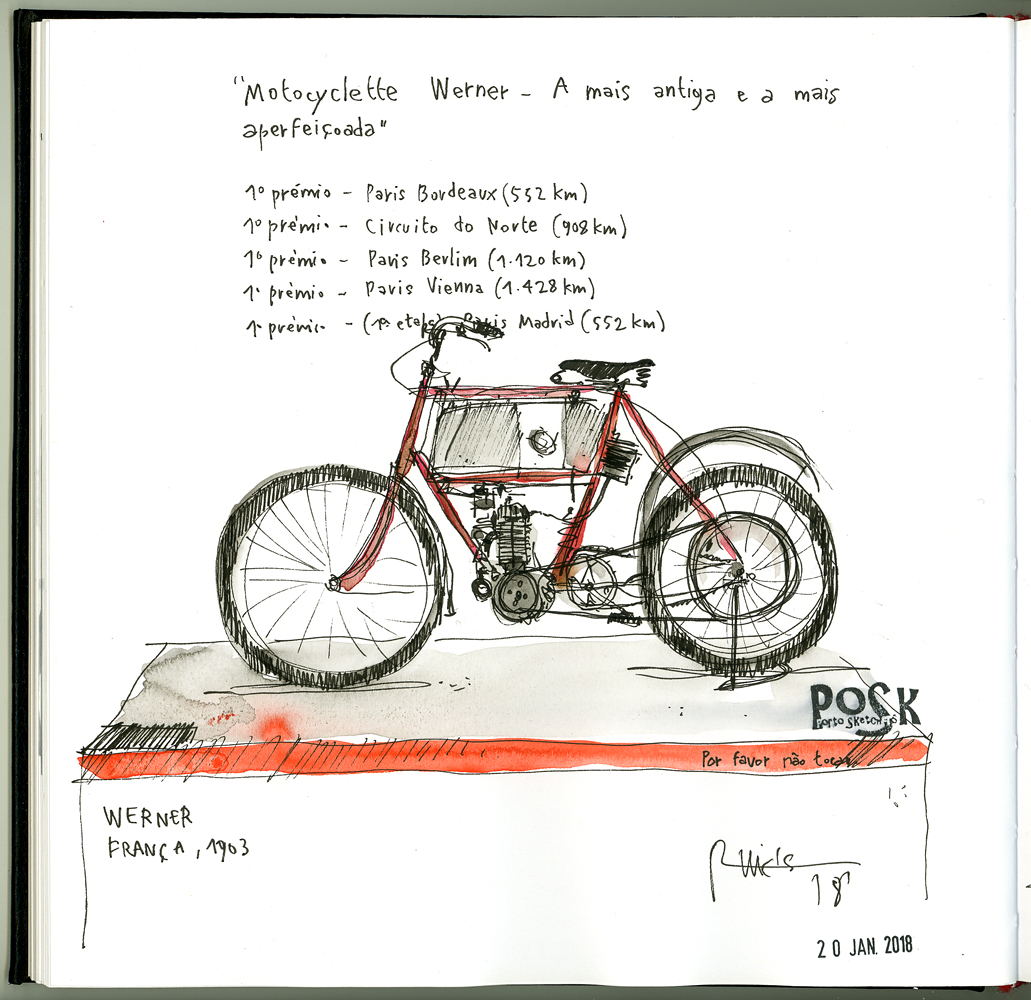 "Motocyclette Werner - A mais antiga e a mais
aperfeiçoada"
1º prémio - Paris Bordeaux (552 km)
1º prémio - Circuito do Norte (908 km)
1º prémio - Paris Berlim (1.120 km)
1º prémio - Paris Vienna (1.428 km)
1º prémio - (1ª etapa) Paris Madrid (552 km)
POSK
Porto Sketch
Por favor não tocar
WERNER
FRANÇA, 1903
18
20 JAN. 2018